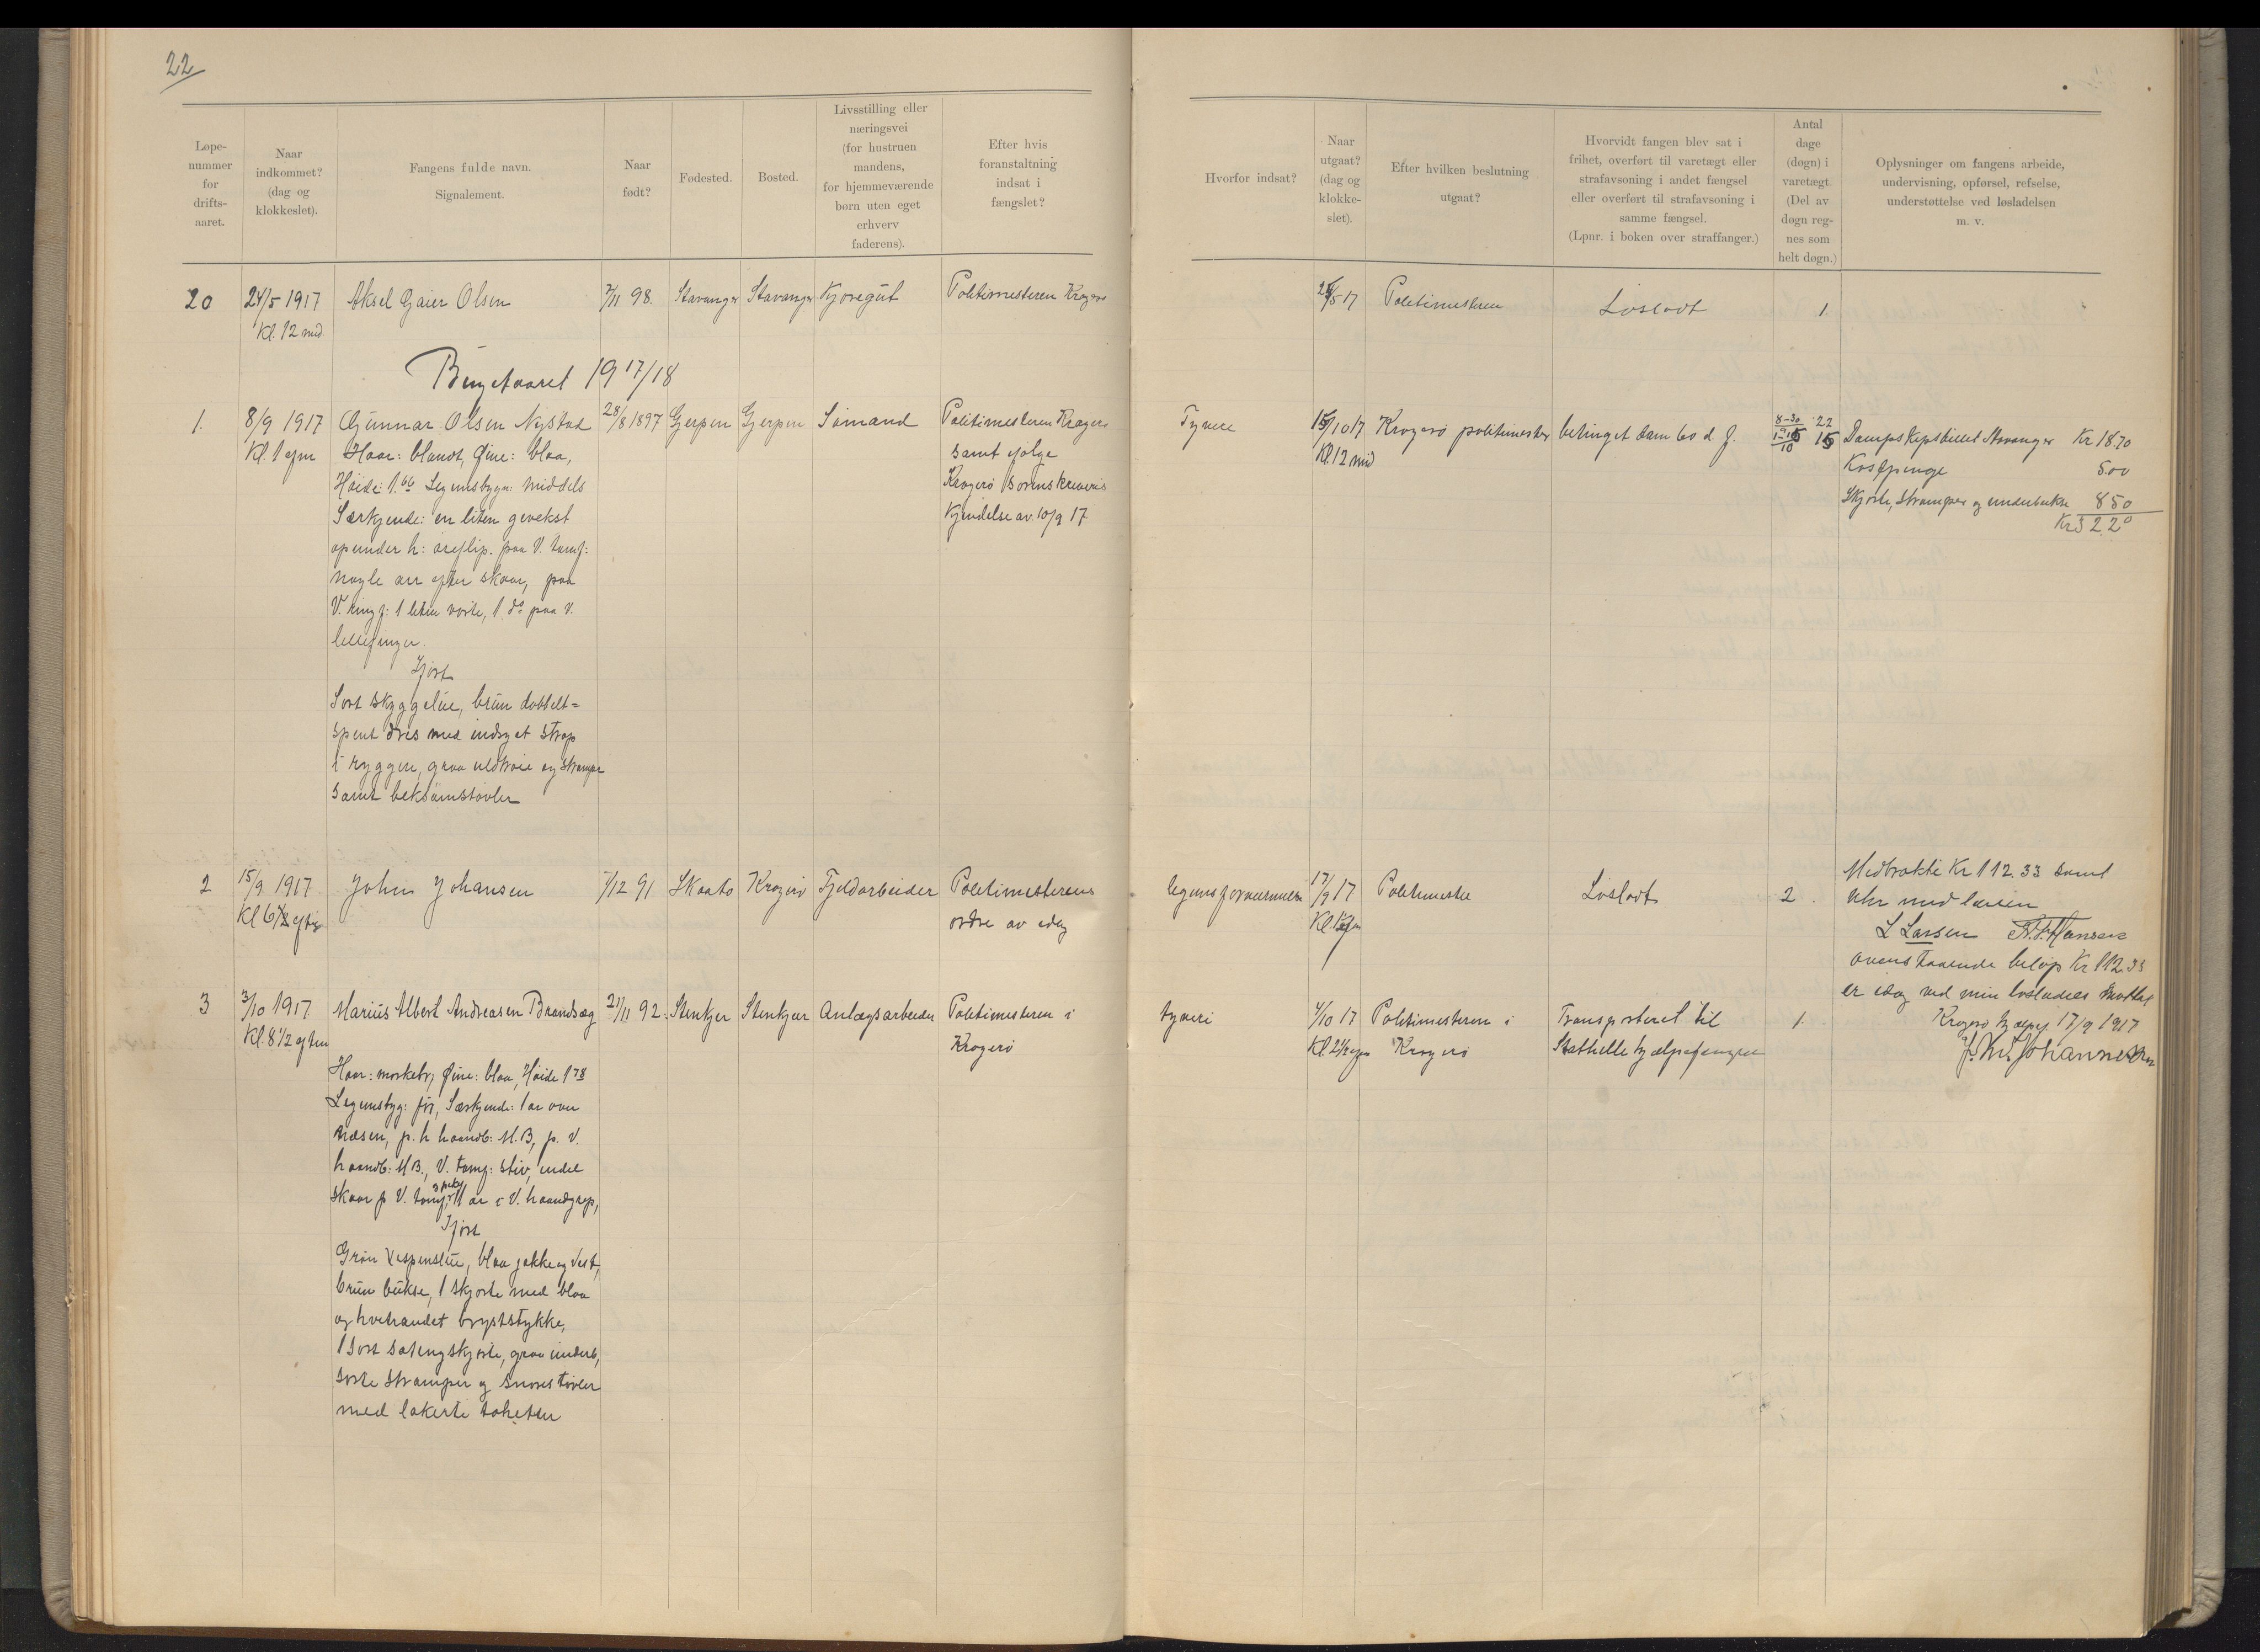 22
Løpe-
nummer
for
drifts-
aaret.
Naar
indkommet?
(dag og
klokkeslet).
Fangens fulde navn.
Signalement.
Naar
født?
Fødested.
Bosted.
Livsstilling eller
næringsvei
(for hustruen
mandens,
for hjemmeværende
børn uten eget
erhverv
faderens).
Efter hvis
foranstaltning
indsat i
fængslet?
Hvorfor indsat?
Naar
utgaat?
(dag og
klokke-
slet).
Efter hvilken beslutning
utgaat?
Hvorvidt fangen blev sat i
frihet, overført til varetægt eller
strafavsoning i andet fængsel
eller overført til strafavsoning i
samme fængsel.
(Lpnr. i boken over straffanger.)
Antal
dage
(døgn) i
varetægt.
(Del av
døgn reg-
nes som
helt døgn.)
Oplysninger om fangens arbeide,
undervisning, opførsel, refselse,
understøttelse ved løsladelsen
m. v.
20 24/5 1917 Aksel Gaier Olsen 7/11 98. Stavanger Stavanger Kjøregut Politimesteren Kragerø
Kl. 12 mid
/5 17 Politimesteren Løsladt 1
Bugetaaret 1917/18
1. 8/9 1917 Gunnar Olsen Nystad 28/8 1897 Gjerpen Gjerpen Sømand Politimesteren Kragerø
Kl. 1 efm Haar: blondt, Øine: blaa, samt ifølge
Høide: 1.66 Legemsbygn: middels Kragerø sorenskriveris
Særkjende: en liten gevekst Kjendelse av 10/9 17
opunder h: øreflip. paa V. tomf:
nogle arr efter skaar, paa
V. ringf: 1 liten vorte, 1 do paa V.
lillefinger.
Iført
Sort skyggelue, brun dobbelt-
spent dres med indsyet strop
i ryggen, graa uldtrøie og strømper
samt beksømstøvler
Tyveri 15/10 17 Kragerø politimester betinget dom 60 d. f. 22 15 Dampskipsbillet Stavanger Kr 18.70
Kl. 12 mid Kostpenge 5.00
Skjorte, Strømper og underbukse 8 50
Kr 32 20
2 15/9 1917 John Johansen 7/12 91 Skaatø Kragerø Fjeldarbeider Politimesterens
Kl 6 1/2 efter ordre av idag
legemsfornærmelse 17/9 17 Politimester Løsladt 2.
Medbrakte Kr 112.33 samt
uhr med lænke
L Larsen Hansen
ovenstaaende beløp Kr 112.33
er idag ved min løsladelse mottat
Kragerø hjælpef. 17/9 1917
Johannesen
3 3/10 1917 Marius Albert Andreasen Brandsæg 21/11 92. Stenkjer Stenkjær Anlægsarbeider Politimesteren i
Kl. 8 1/2 eftm Kragerø
Haar: mørkebr; Øine: blaa, Høide 1 78
Legemsbyg: før, Særkjende: 1 ar over
næsen, p. h haandb: M.B, p. V.
haandb: M B., V. tomf: stiv, endel
skaar p V. tomf 1 ar i V. haandgrep,
Iført
Grøn Vespenslue, blaa jakke og Vest,
brun bukse, 1 skjorte med blaa
og hvitrandet bryststykke,
1 sort satengskjorte, graa underb,
sorte strømper og snørestøvler
med lakerte tahetter
tyveri 4/10 17 Politimesteren i Transporteret til 1.
Kl. 2 1/2 efm Kragerø Stathelle hjælpefængsel